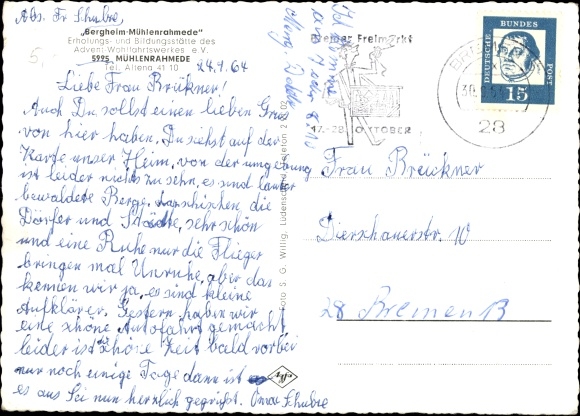 Abs. Fr. Schubre,
"Bergheim-Mühlenrahmede"
Erholungs- und Bildungsstätte des
Advent-Wohlfahrtswerkes e.V.
5925 MÜHLENRAHMEDE
Tel. Altena 41 10
24.9.64
Liebe Frau Brückner!
Auch Du sollst einen lieben Gruß
von hier haben. Du siehst auf der
Karte unser Heim, von der umgebung
ist leider nichts zu sehn, es sind lauter
bewaldete Berge. Dazwischen die
Dörfer und Städte, sehr schön
und eine Ruhe nur die Flieger
bringen mal Unruhe, aber das
kennen wir ja, es sind kleine
Aufklärer. Gestern haben wir
eine schöne Autofahrt gemacht
leider ist schöne Zeit bald vorbei
nur noch einige Tage dann ist
es aus Sei nun herzlich gegrüßt. Oma Schubre
Ich komme
Foto S. G. Willig, Lüdenscheid, Telefon
Agfa
Bremer Freimarkt
17.-28. OKTOBER
28
DEUTSCHE
BUNDES
POST
15
Frau Brückner
Dierschauerstr. 10
28 Bremen 13